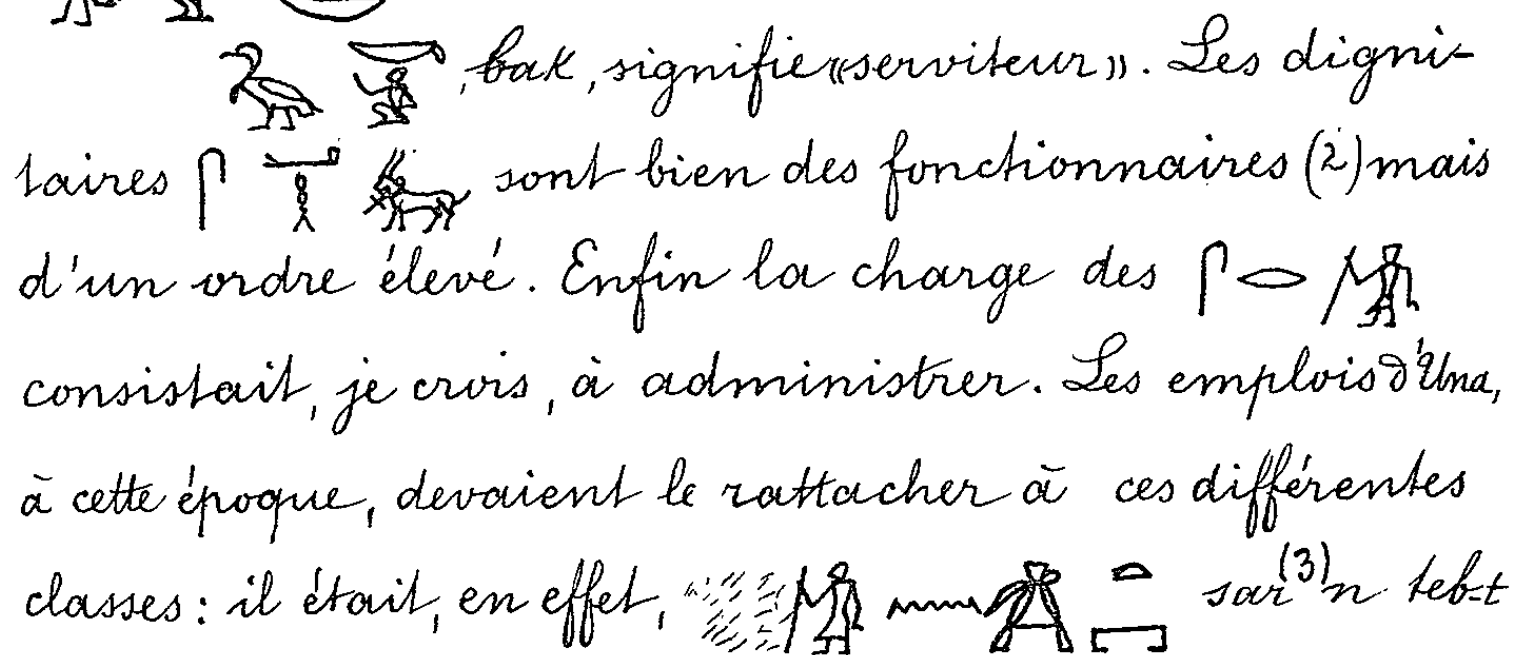 , bak, signifie «serviteur». Les digni-
taires sont bien des fonctionnaires (2) mais
d'un ordre élevé. Enfin la charge des
consistait, je crois, à administrer. Les emplois d'Una,
à cette époque, devaient le rattacher à ces différentes
classes: il était, en effet, sar (3) n teb-t